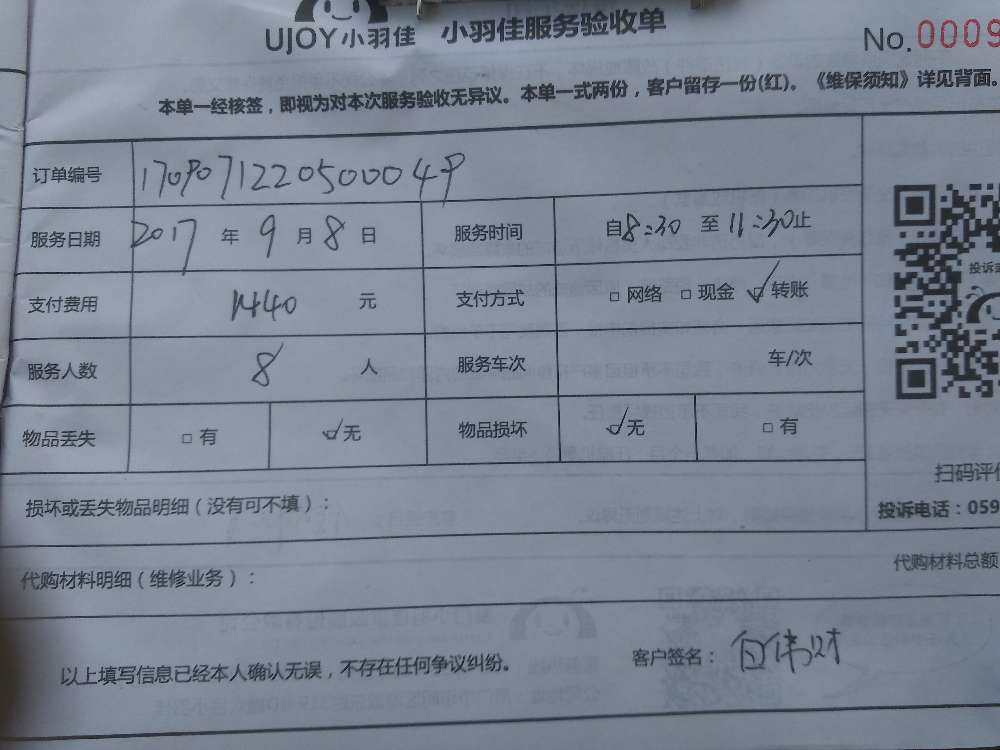 UJOY小羽佳 小羽佳服务验收单
No.0009
本单一经核签，即视为对本次服务验收无异议。本单一式两份，客户留存一份(红)。《维保须知》详见背面。
订单编号 170907122050004
服务日期 2017 年 9 月 8 日 服务时间 自8:30 至 11:30止
支付费用 1440 元 支付方式 □ 网络 □ 现金 ☑ 转账
服务人数 8 人 服务车次 车/次
物品丢失 □ 有 ☑ 无 物品损坏 ☑ 无 □ 有
投诉
扫码评
损坏或丢失物品明细（没有可不填）：
投诉电话：059
代购材料明细（维修业务）：
代购材料总额
以上填写信息已经本人确认无误，不存在任何争议纠纷。
客户签名：